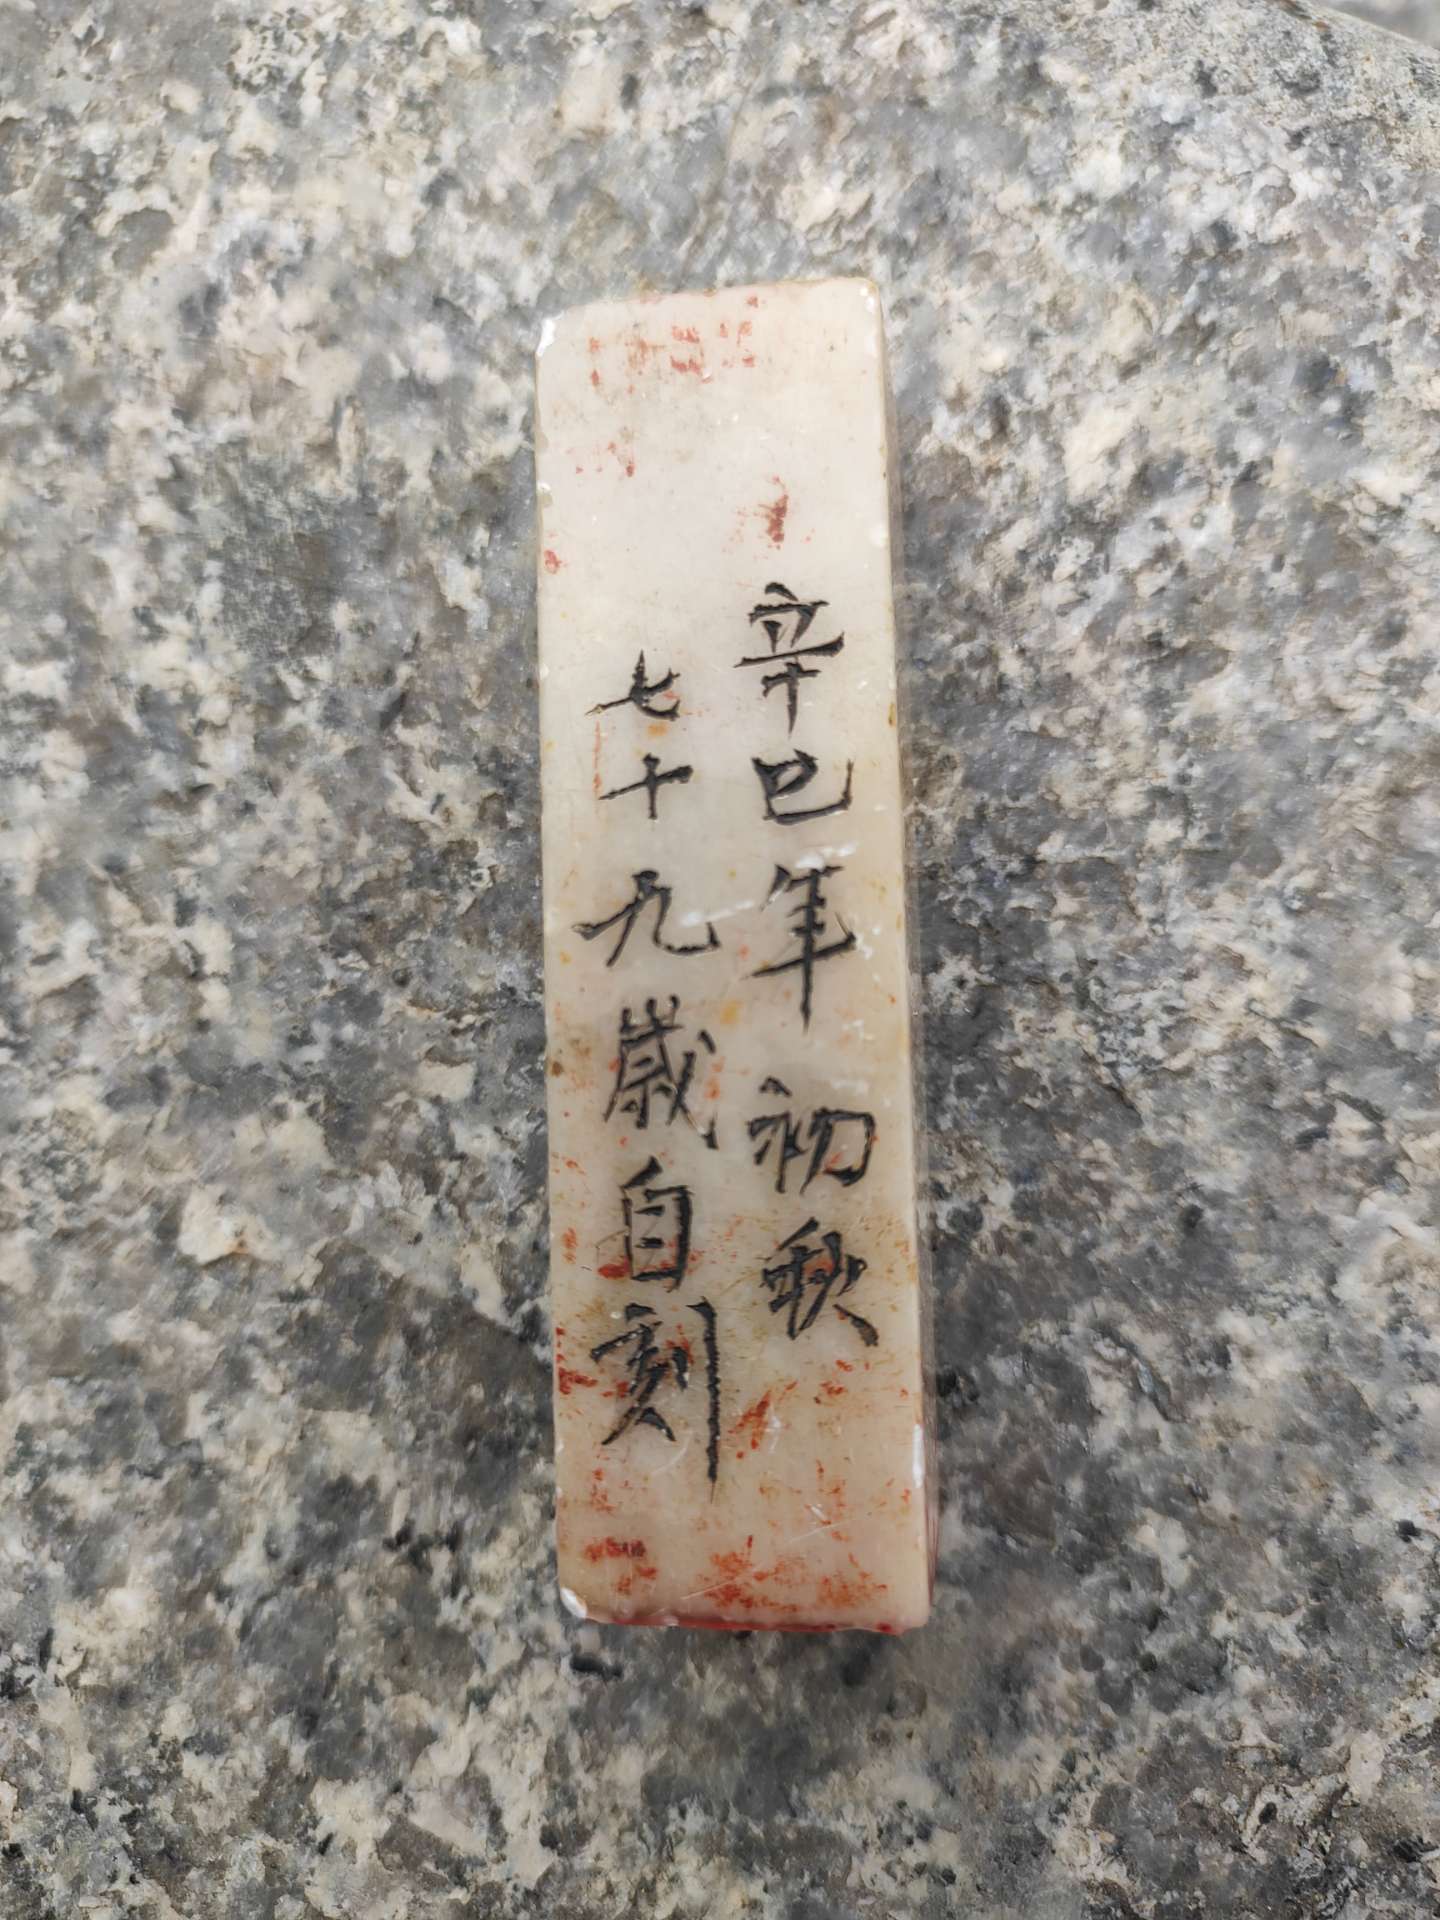 辛巳年初秋
七十九歲自刻